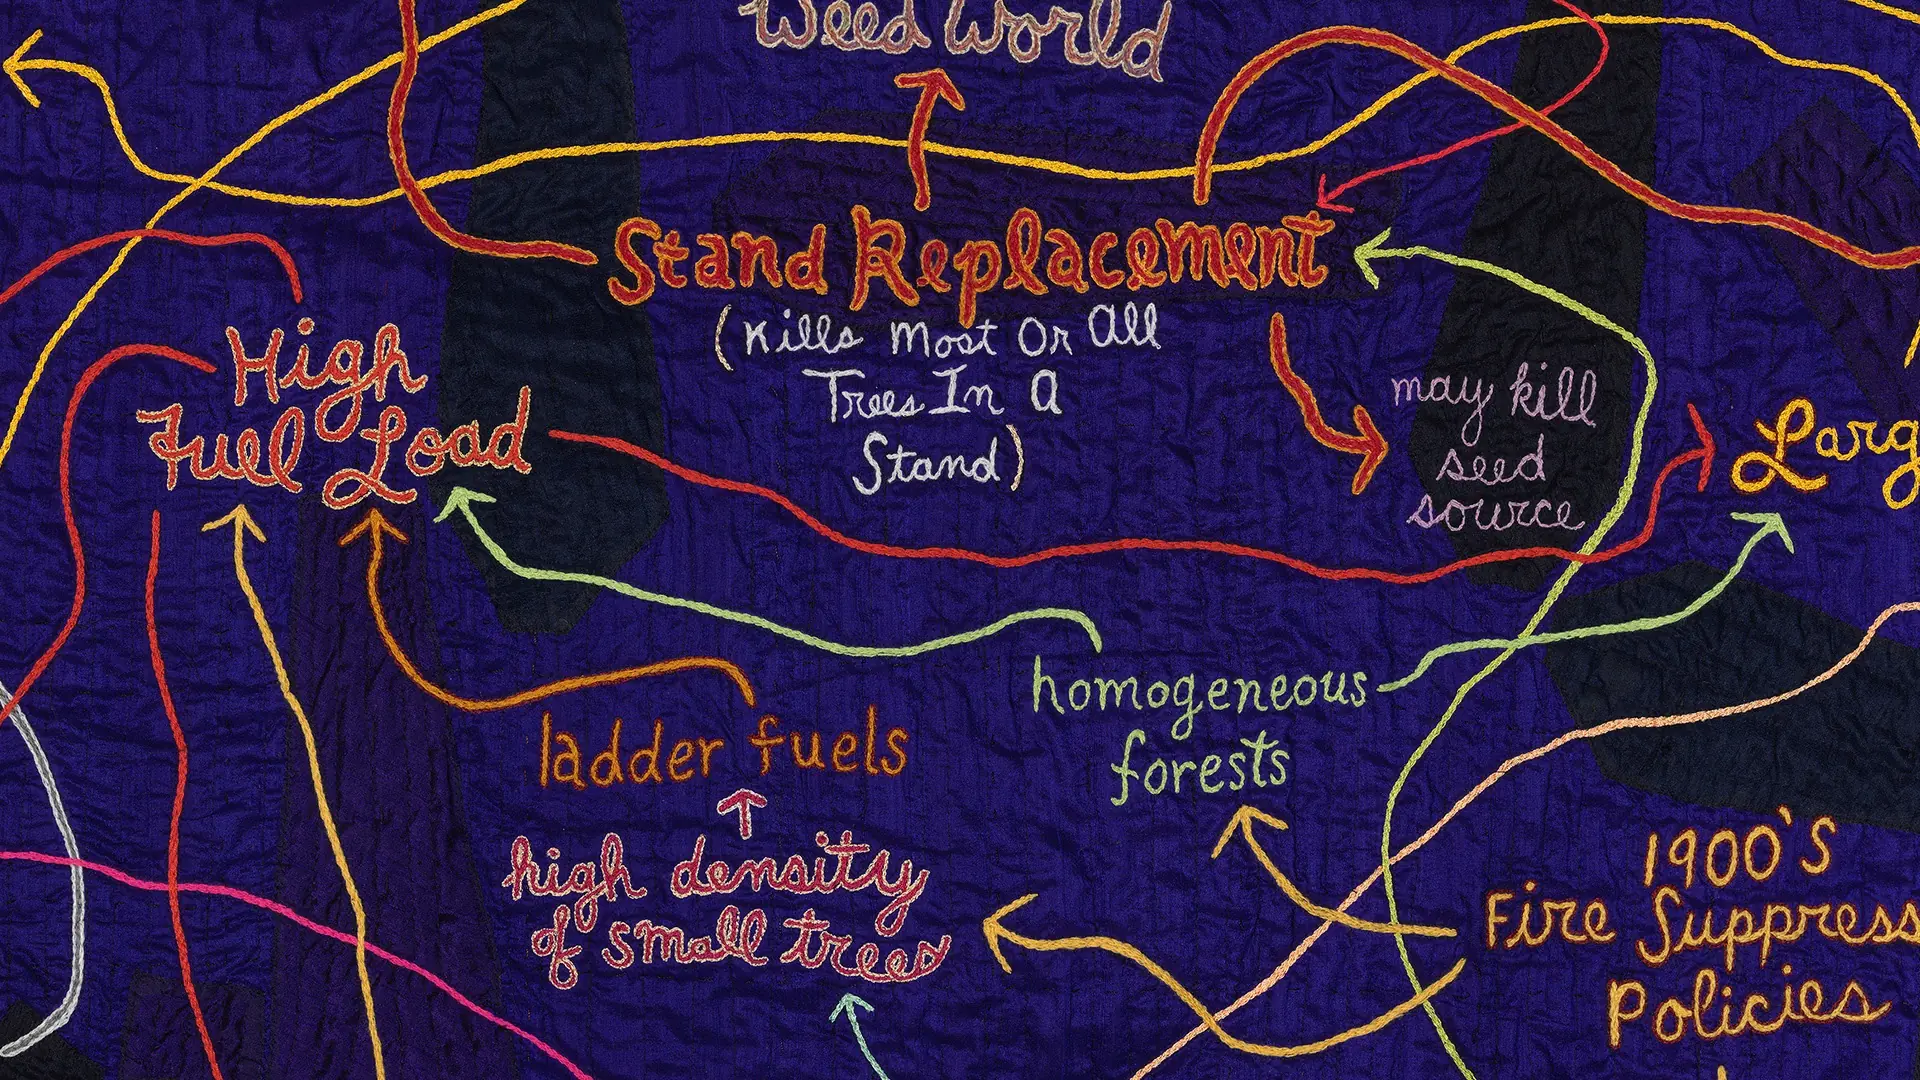 Weed World
Stand Replacement
(Kills Most Or All
Trees In A
Stand)
High
Fuel Load
may kill
seed
source
Larg
homogeneous
forests
ladder fuels
high density
of small trees
1900's
Fire Suppress
Policies